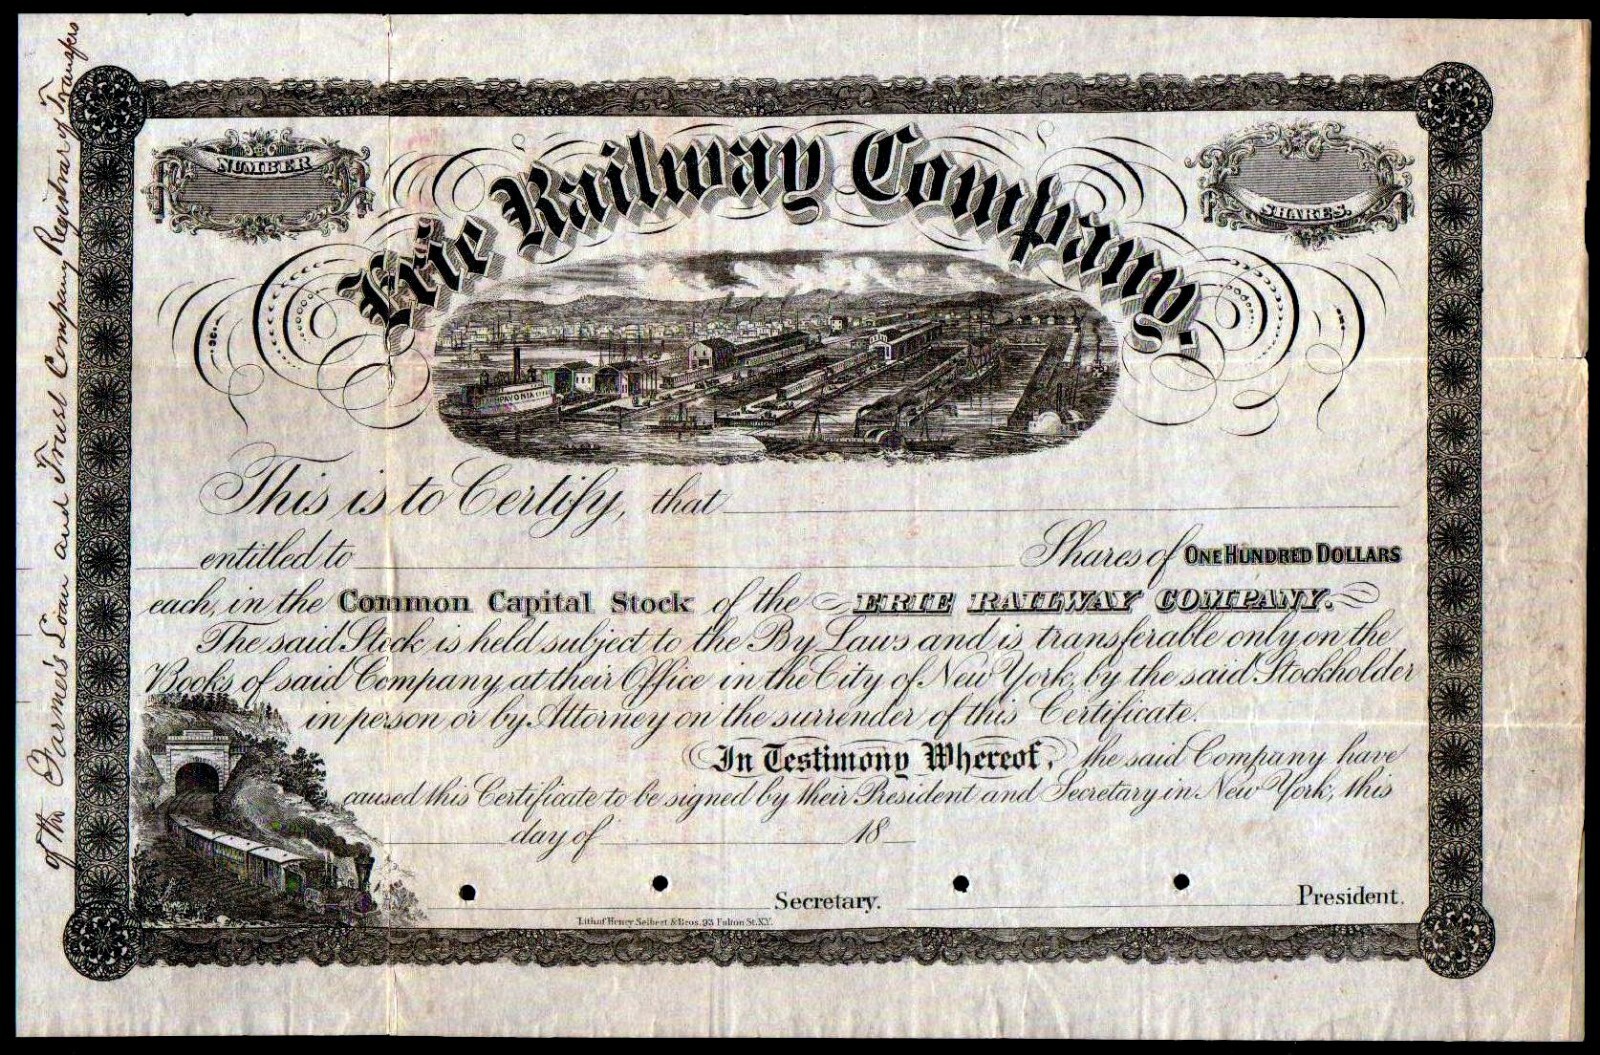 of the Farmer's Loan and Trust Company Registrar of Transfers
NUMBER
SHARES.
Erie Railway Company.
PAVONIA
This is to Certify, that
entitled to Shares of ONE HUNDRED DOLLARS
each, in the Common Capital Stock of the ERIE RAILWAY COMPANY.
The said Stock is held subject to the By Laws and is transferable only on the
Books of said Company, at their Office in the City of New York, by the said Stockholder
in person or by Attorney on the surrender of this Certificate.
In Testimony Whereof, the said Company have
caused this Certificate to be signed by their President and Secretary in New York, this
day of 18
Secretary. President.
Lith of Henry Seibert & Bros. 93 Fulton St. N.Y.